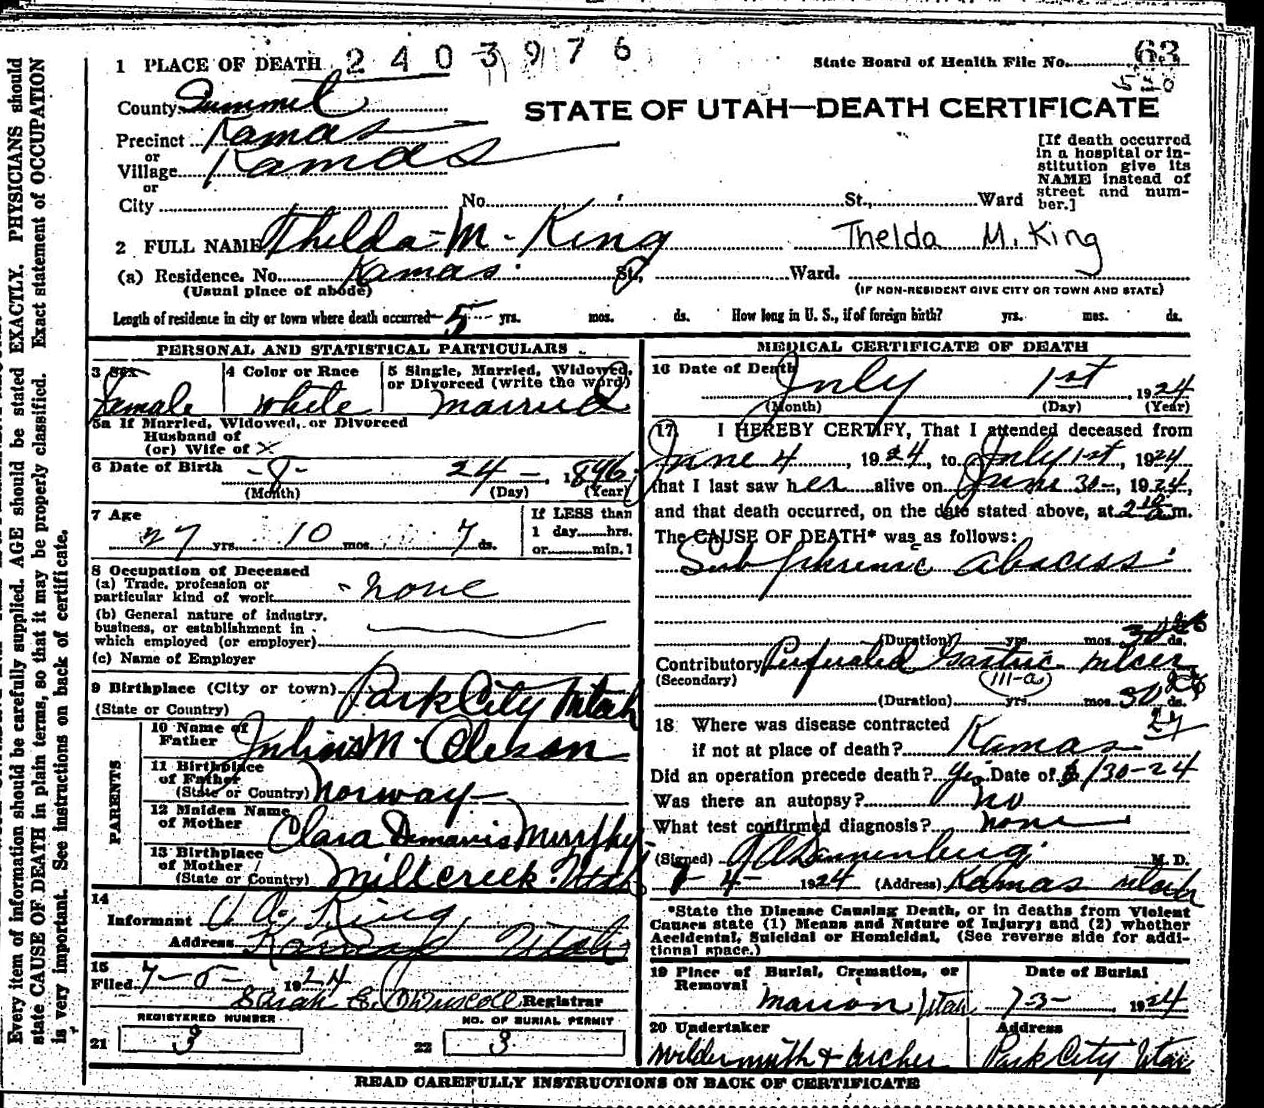 1 PLACE OF DEATH 2403976
State Board of Health File No. 63
County Summit
STATE OF UTAH—DEATH CERTIFICATE
Precinct Kamas
or
Village Kamas
or
City No. St., Ward
[If death occurred
in a hospital or in-
stitution give its
NAME instead of
street and num-
ber.]
2 FULL NAME Thelda M. King Thelda M. King
(a) Residence. No. Kamas St., Ward.
(Usual place of abode) (IF NON-RESIDENT GIVE CITY OR TOWN AND STATE)
Length of residence in city or town where death occurred 5 yrs. mos. ds. How long in U. S., if of foreign birth? yrs. mos. ds.
PERSONAL AND STATISTICAL PARTICULARS
3 Sex 4 Color or Race 5 Single, Married, Widowed,
or Divorced (write the word)
Female White married
5a If Married, Widowed, or Divorced
Husband of
(or) Wife of X
6 Date of Birth -8- 24- , 1896
(Month) (Day) (Year)
7 Age If LESS than
27 yrs. 10 mos. 7 ds. 1 day......hrs.
or......min. ?
8 Occupation of Deceased
(a) Trade, profession or
particular kind of work - none
(b) General nature of industry,
business, or establishment in
which employed (or employer)
(c) Name of Employer
9 Birthplace (City or town) Park City Utah
(State or Country)
PARENTS
10 Name of
Father Julius M. Oleson
11 Birthplace
of Father
(State or Country) Norway
12 Maiden Name
of Mother Clara Murphy
13 Birthplace
of Mother
(State or Country) Millcreek Utah
14
Informant King
Address Kamas Utah
15
Filed 7-5 1924
Sarah E. O'Driscoll Registrar
REGISTERED NUMBER NO. OF BURIAL PERMIT
21 3 22 3
MEDICAL CERTIFICATE OF DEATH
16 Date of Death July 1st , 1924
(Month) (Day) (Year)
17 I HEREBY CERTIFY, That I attended deceased from
June 4 , 1924, to July 1st, 1924
that I last saw her alive on June 30-, 1924,
and that death occurred, on the date stated above, at 2 10 a m.
The CAUSE OF DEATH* was as follows:
Sub phrenic abscess
(Duration) yrs. mos. ds.
Contributory Perforated Gastric ulcer
(Secondary) 111-a
(Duration) yrs. mos. 30 ds.
18 Where was disease contracted 27
if not at place of death? Kamas
Did an operation precede death? Yes Date of 6/30-24
Was there an autopsy? no
What test confirmed diagnosis? none
(Signed) Dannenberg M. D.
7-4- 1924 (Address) Kamas Utah
*State the Disease Causing Death, or in deaths from Violent
Causes state (1) Means and Nature of Injury; and (2) whether
Accidental, Suicidal or Homicidal. (See reverse side for addi-
tional space.)
19 Place of Burial, Cremation, or Date of Burial
Removal
Marion Utah 7 3- 1924
20 Undertaker Address
Wildermuth & Archer Park City Utah
READ CAREFULLY INSTRUCTIONS ON BACK OF CERTIFICATE
Every item of information should be carefully supplied. AGE should be stated EXACTLY. PHYSICIANS should
state CAUSE OF DEATH in plain terms, so that it may be properly classified. Exact statement of OCCUPATION
is very important. See instructions on back of certificate.